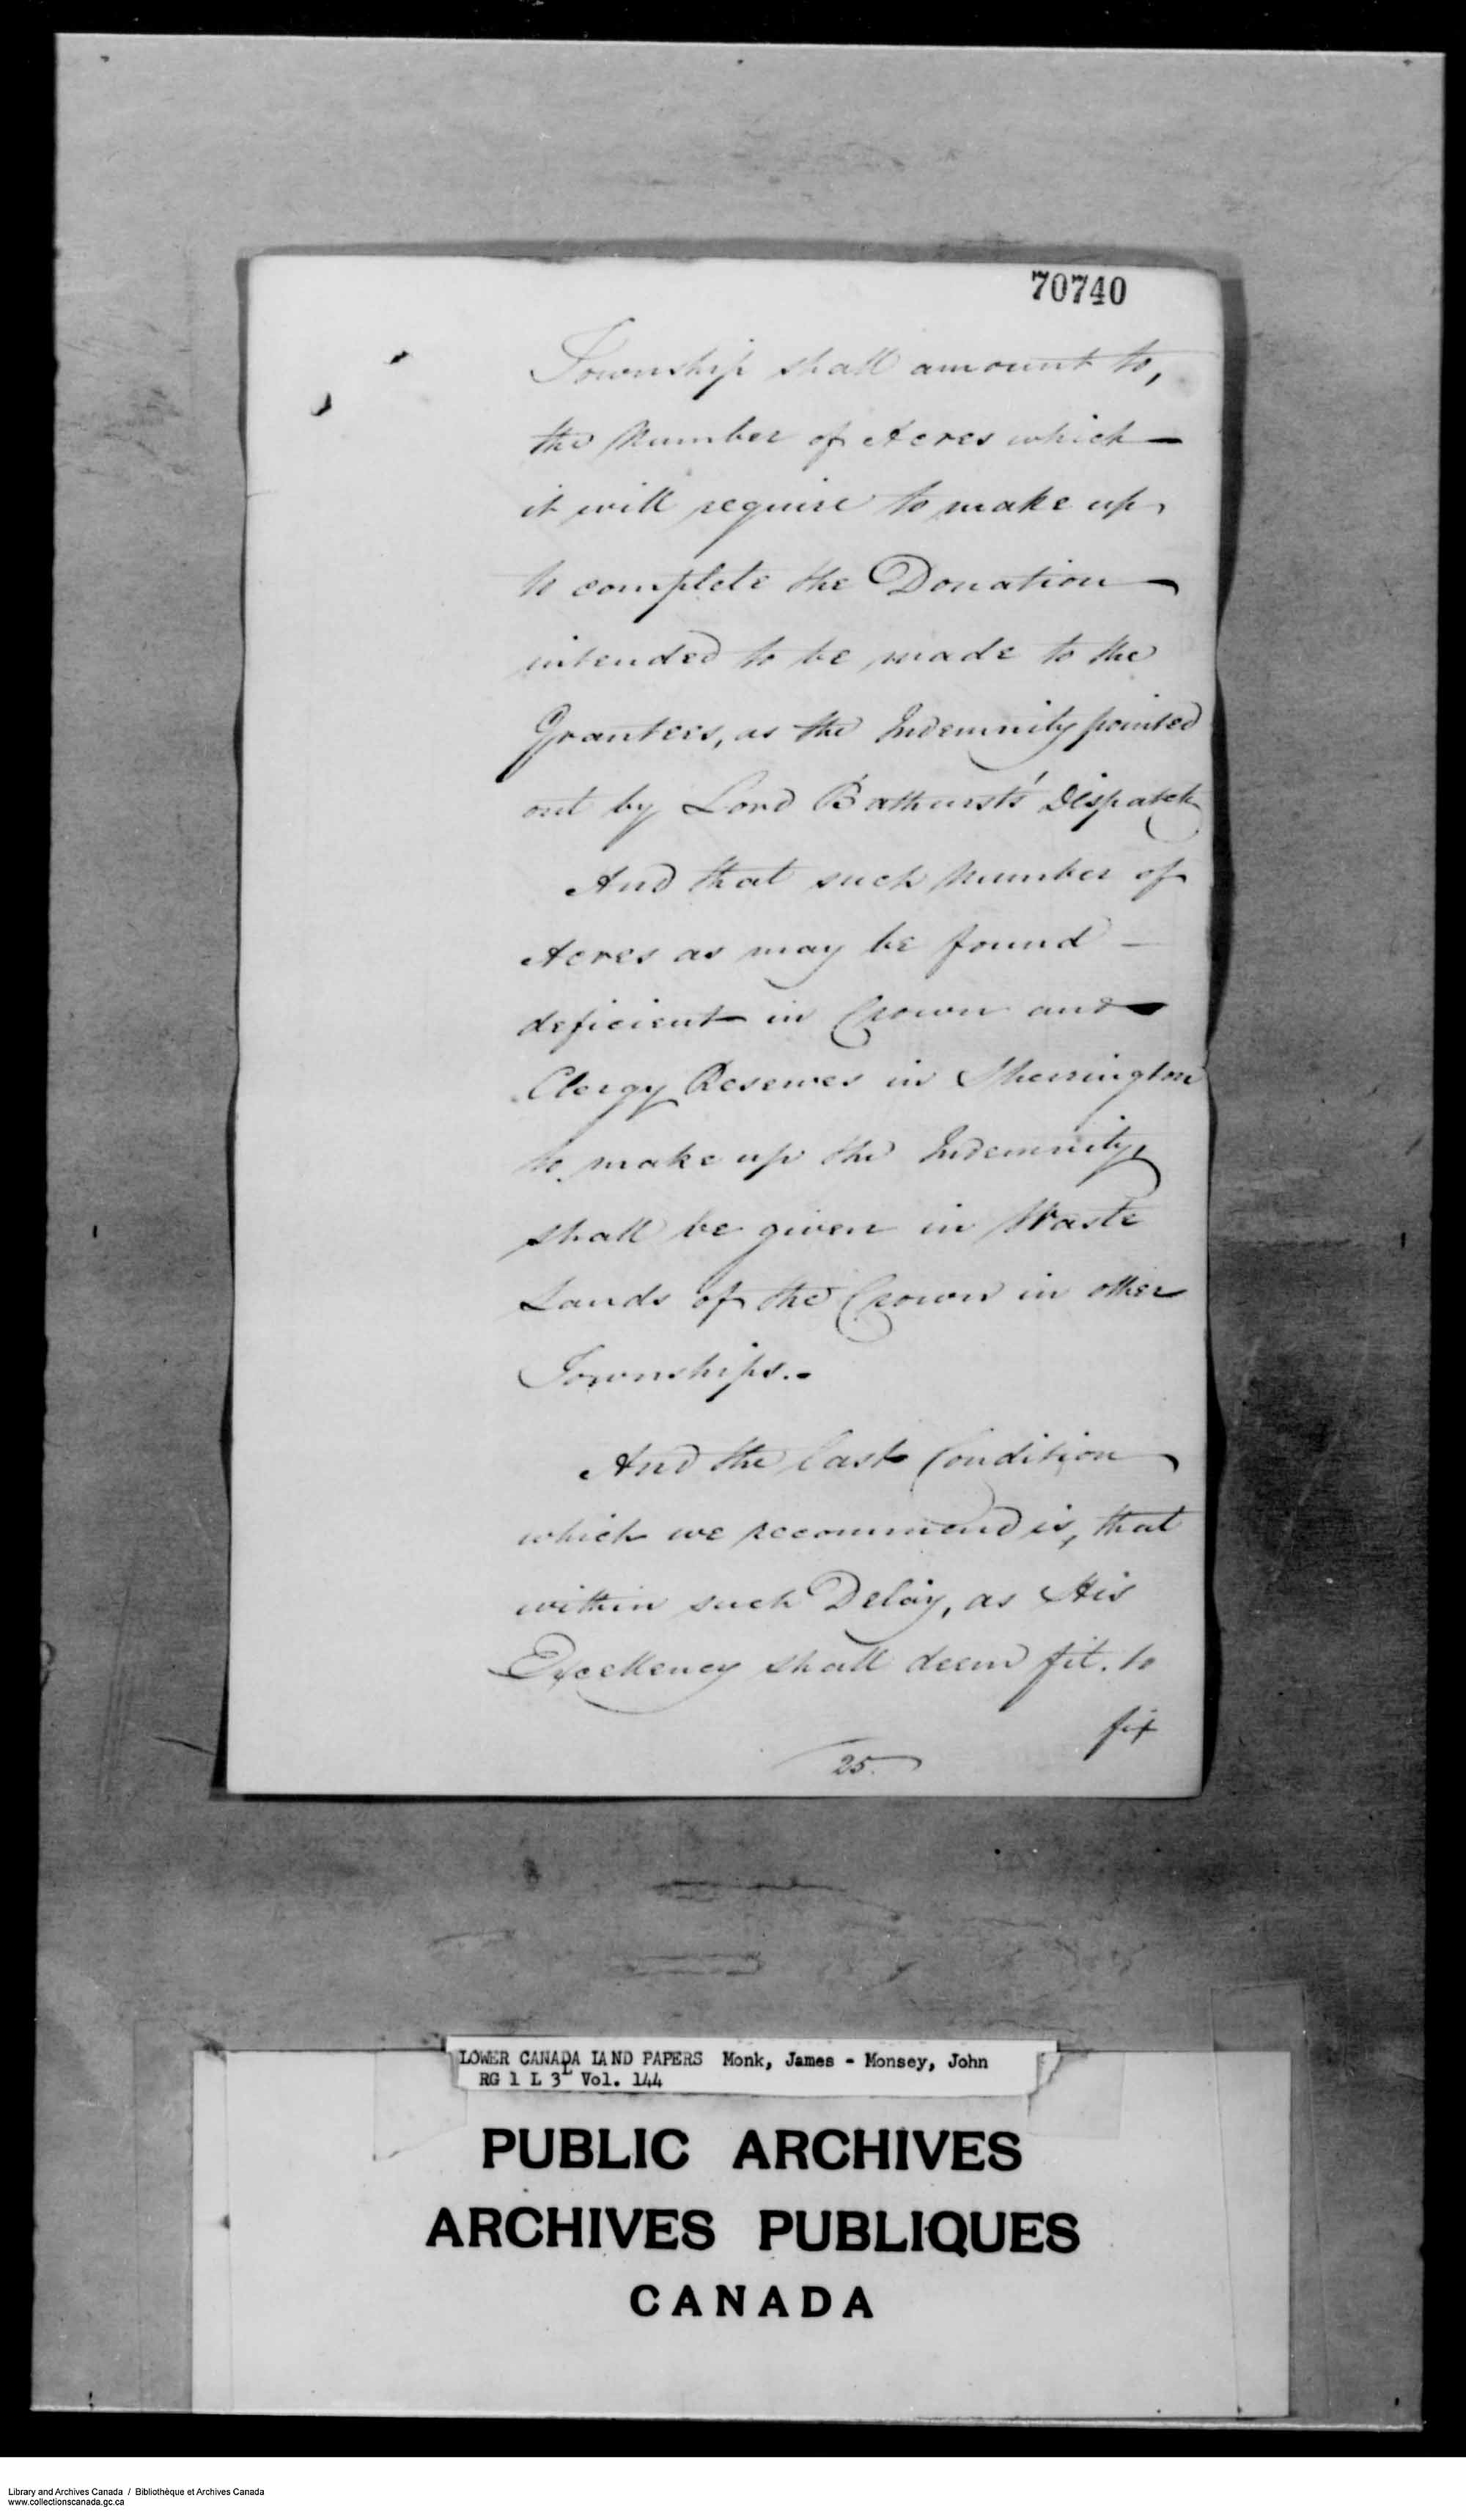 70740
Township shall amount to,
the Number of Acres which
it will require to make up,
to complete the Donation
intended to be made to the
Grantees, as the Indemnity pointed
out by Lord Bathursts' Dispatch
And that such Number of
Acres as may be found
deficient in Crown and
Clergy Reserves in Sherrington
to make up the Indemnity,
shall be given in Waste
Lands of the Crown in other
Townships.-
And the last Condition
which we recommend is, that
within such Delay, as His
Excellency shall deem fit. to
fix
25.
LOWER CANADA LAND PAPERS Monk, James - Monsey, John
RG 1 L 3L Vol. 144
PUBLIC ARCHIVES
ARCHIVES PUBLIQUES
CANADA
Library and Archives Canada / Bibliothèque et Archives Canada
www.collectionscanada.gc.ca